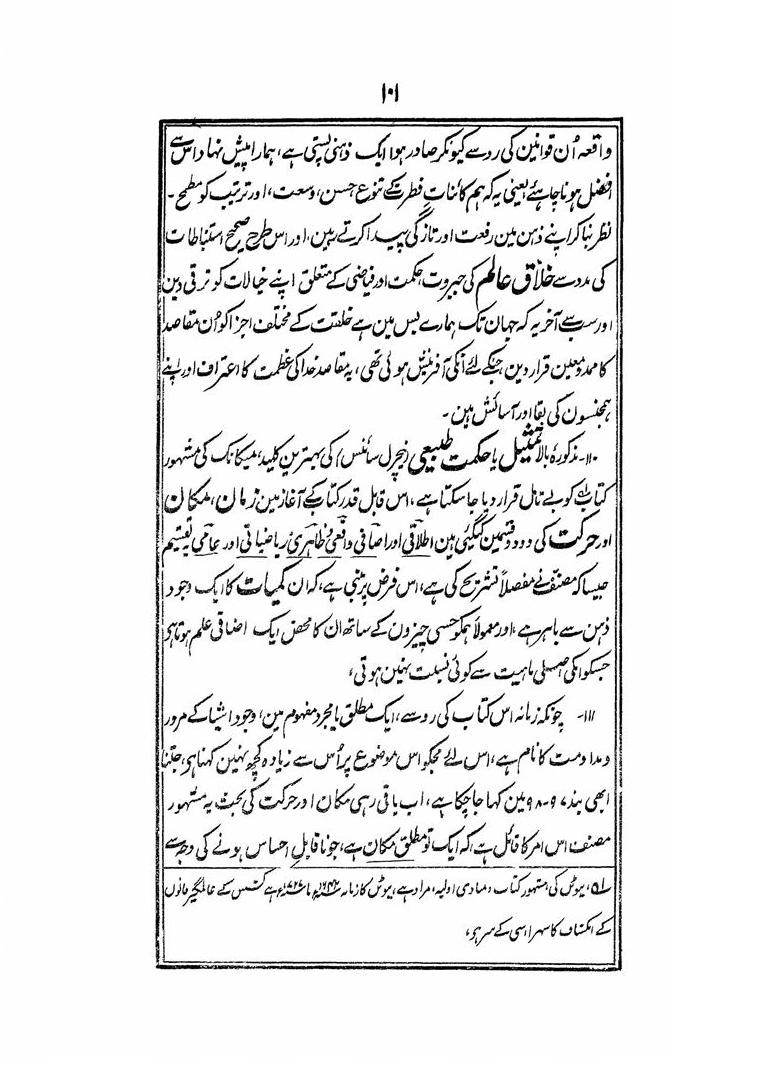 ۱۰۱
واقعہ اُن قوانین کی رو سے کیونکر صادر ہوا ایک ذہنی پستی ہے، ہمارا پیش نہاد اس سے
افضل ہونا چاہئے، یعنی یہ کہ ہم کائناتِ فطرت کے تنوع حسن، وسعت، اور ترتیب کو مطمح-
نظر بنا کر اپنے ذہن مین رفعت اور تازگی پیدا کرتے رہین، اور اس طرح صحیح استنباطات
کی مدد سے خلاق عالم کی جبروت، حکمت اور فیاضی کے متعلق اپنے خیالات کو ترقی دین
اور سب سے آخر یہ کہ جہان تک ہمارے بس مین ہے خلقت کے مختلف اجزا کو اُن مقاصد
کا ممد و معین قرار دین جنکے لئے انکی آفرینش ہوئی تھی، یہ مقاصد خدا کی عظمت کا اعتراف اور اپنے
ہمجنسون کی بقا اور آسائش ہین۔
۱۱۰- مذکورۂ بالا تمثیل یا حکمت طبیعی (نیچرل سائنس) کی بہترین کلید، میکانک کی مشہور
کتاب کو بے تامل قرار دیا جا سکتا ہے، اس قابل قدر کتاب کے آغاز مین زمان، مکان
اور حرکت کی دو دو قسمین کیگئی ہین اطلاقی اور اضافی واقعی و ظاہری ریاضیاتی اور عامی یہ تقسیم
جیسا کہ مصنف نے مفصلاً تشریح کی ہے، اس فرض پر مبنی ہے، کہ ان کمیات کا ایک وجود
ذہن سے باہر ہے، اور معمولاً ہمکو حسی چیزون کے ساتھ ان کا محض ایک اضافی علم ہوتا ہی
جسکو انکی اصلی ماہیت سے کوئی نسبت نہین ہوتی،
۱۱۱- چونکہ زمانہ اس کتاب کی رو سے، ایک مطلق یا مجرد مفہوم مین، وجود اشیا کے مرور
و مداومت کا نام ہے، اس لئے مجکو اس موضوع پر اُس سے زیادہ کچھ نہین کہنا ہی، جتنا
ابھی بند ۹۷-۹۸ مین کہا جا چکا ہے، اب باقی رہی مکان اور حرکت کی بحث یہ مشہور
مصنف اس امر کا قائل ہے، کہ ایک تو مطلق مکان ہے، جو ناقابلِ احساس ہونے کی وجہ سے
لہ، نیوٹن کی مشہور کتاب، مبادی اولیہ، مراد ہے، نیوٹن کا زمانہ ۱۶۴۲ء تا ۱۷۲۷ء ہے کشش کے عالمگیر قانون
کے انکشاف کا سہرا اسی کے سر ہو،